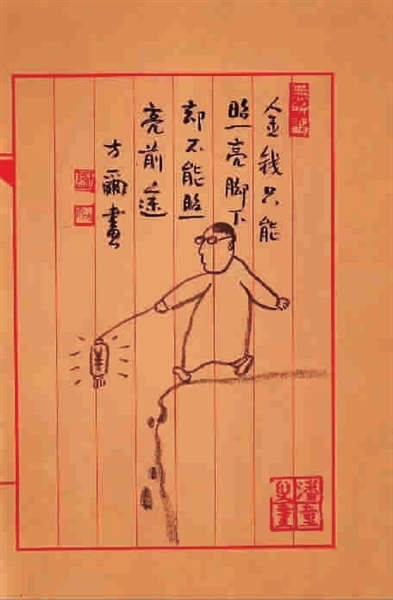 金钱只能
照亮脚下
却不能照
亮前途
方爾畫
¥